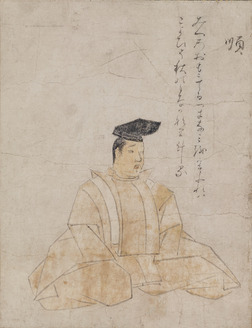 順
みつのおもにてるつきなみをかそふれは
こよひそ秋のもなかなりける